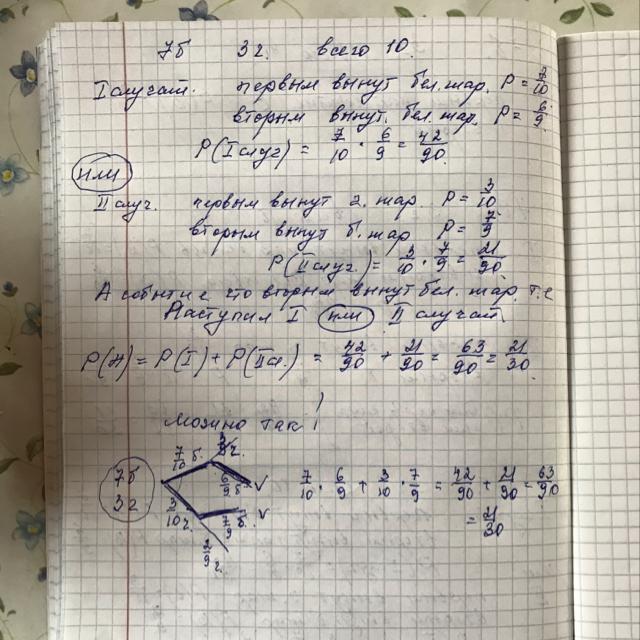 7б 3ч. всего 10.
I случай. первым вынут бел. шар, P = 7/10
вторым вынут. бел. шар, P = 6/9
P(I случ) = 7/10 · 6/9 = 42/90.
или
II случ. первым вынут ч. шар. P = 3/10
вторым вынут б. шар P = 7/9
P(II случ.) = 3/10 · 7/9 = 21/90.
A событие что вторым вынут бел. шар. т.е
Наступил I или II случай.
P(A) = P(I) + P(II сл.) = 42/90 + 21/90 = 63/90 = 21/30
можно так!
7/10 б. 3/9 ч.
7б
3ч
6/9 б. v 7/10 · 6/9 + 3/10 · 7/9 = 42/90 + 21/90 = 63/90
3/10 ч. 7/9 б. v = 21/30
2/9 ч.